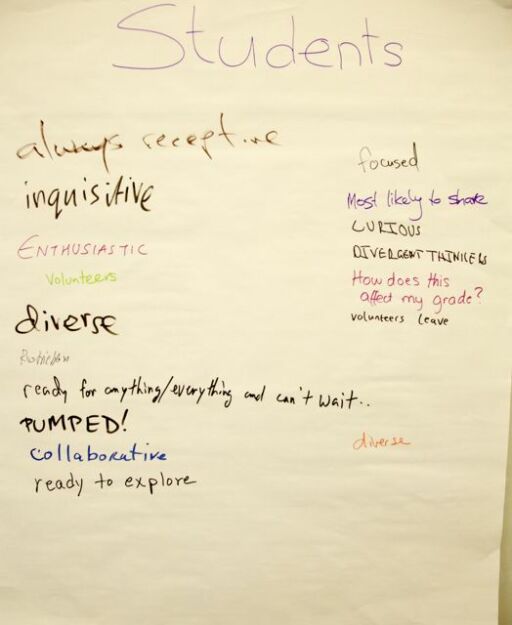 Students
always receptive
inquisitive
ENTHUSIASTIC
Volunteers
diverse
ready for anything/everything and can't wait..
PUMPED!
collaborative
ready to explore
focused
Most likely to share
CURIOUS
DIVERGENT THINKERS
How does this
affect my grade?
volunteers leave
diverse